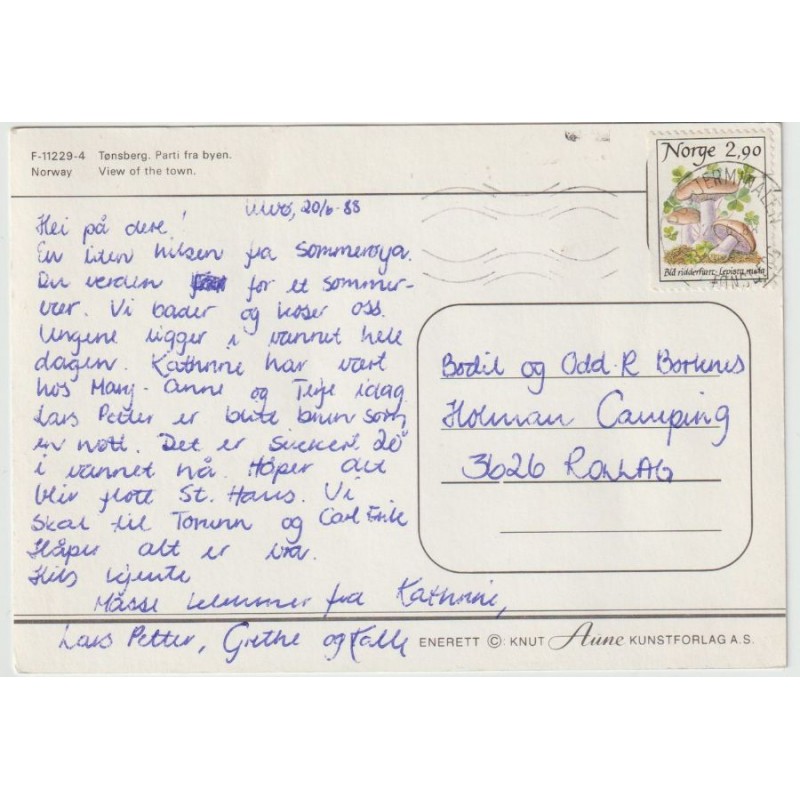 F-11229-4 Tønsberg. Parti fra byen.
Norway View of the town.
20/6-88
Hei på dere!
En liten hilsen fra Sommerøya.
Du verden for et sommer-
vær. Vi bader og koser oss.
Ungene ligger i vannet hele
dagen. Kathrine har vært
hos Mary-Anne og Terje idag
Lars Petter er blitt brun som
en nøtt. Det er sikkert 20°
i vannet nå. Håper det
blir flott St. Hans. Vi
skal til Torunn og Carl Erik
Håper alt er bra.
Hils kjente
Masse klemmer fra Kathrine,
Lars Petter, Grethe og Kalle
Norge 2,90
Blå ridderhatt-Lepista nuda
Bodil og Odd.R Borknes
Holman Camping
3626 ROLLAG
ENERETT ©: KNUT Aune KUNSTFORLAG A.S.